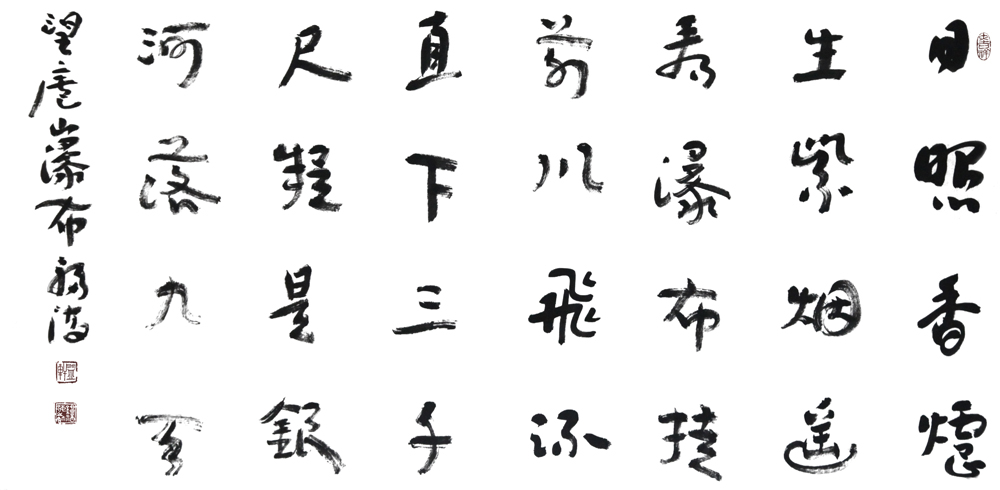 日照香爐
生紫烟遙
看瀑布挂
前川飛流
直下三千
尺疑是銀
河落九天
望廬山瀑布